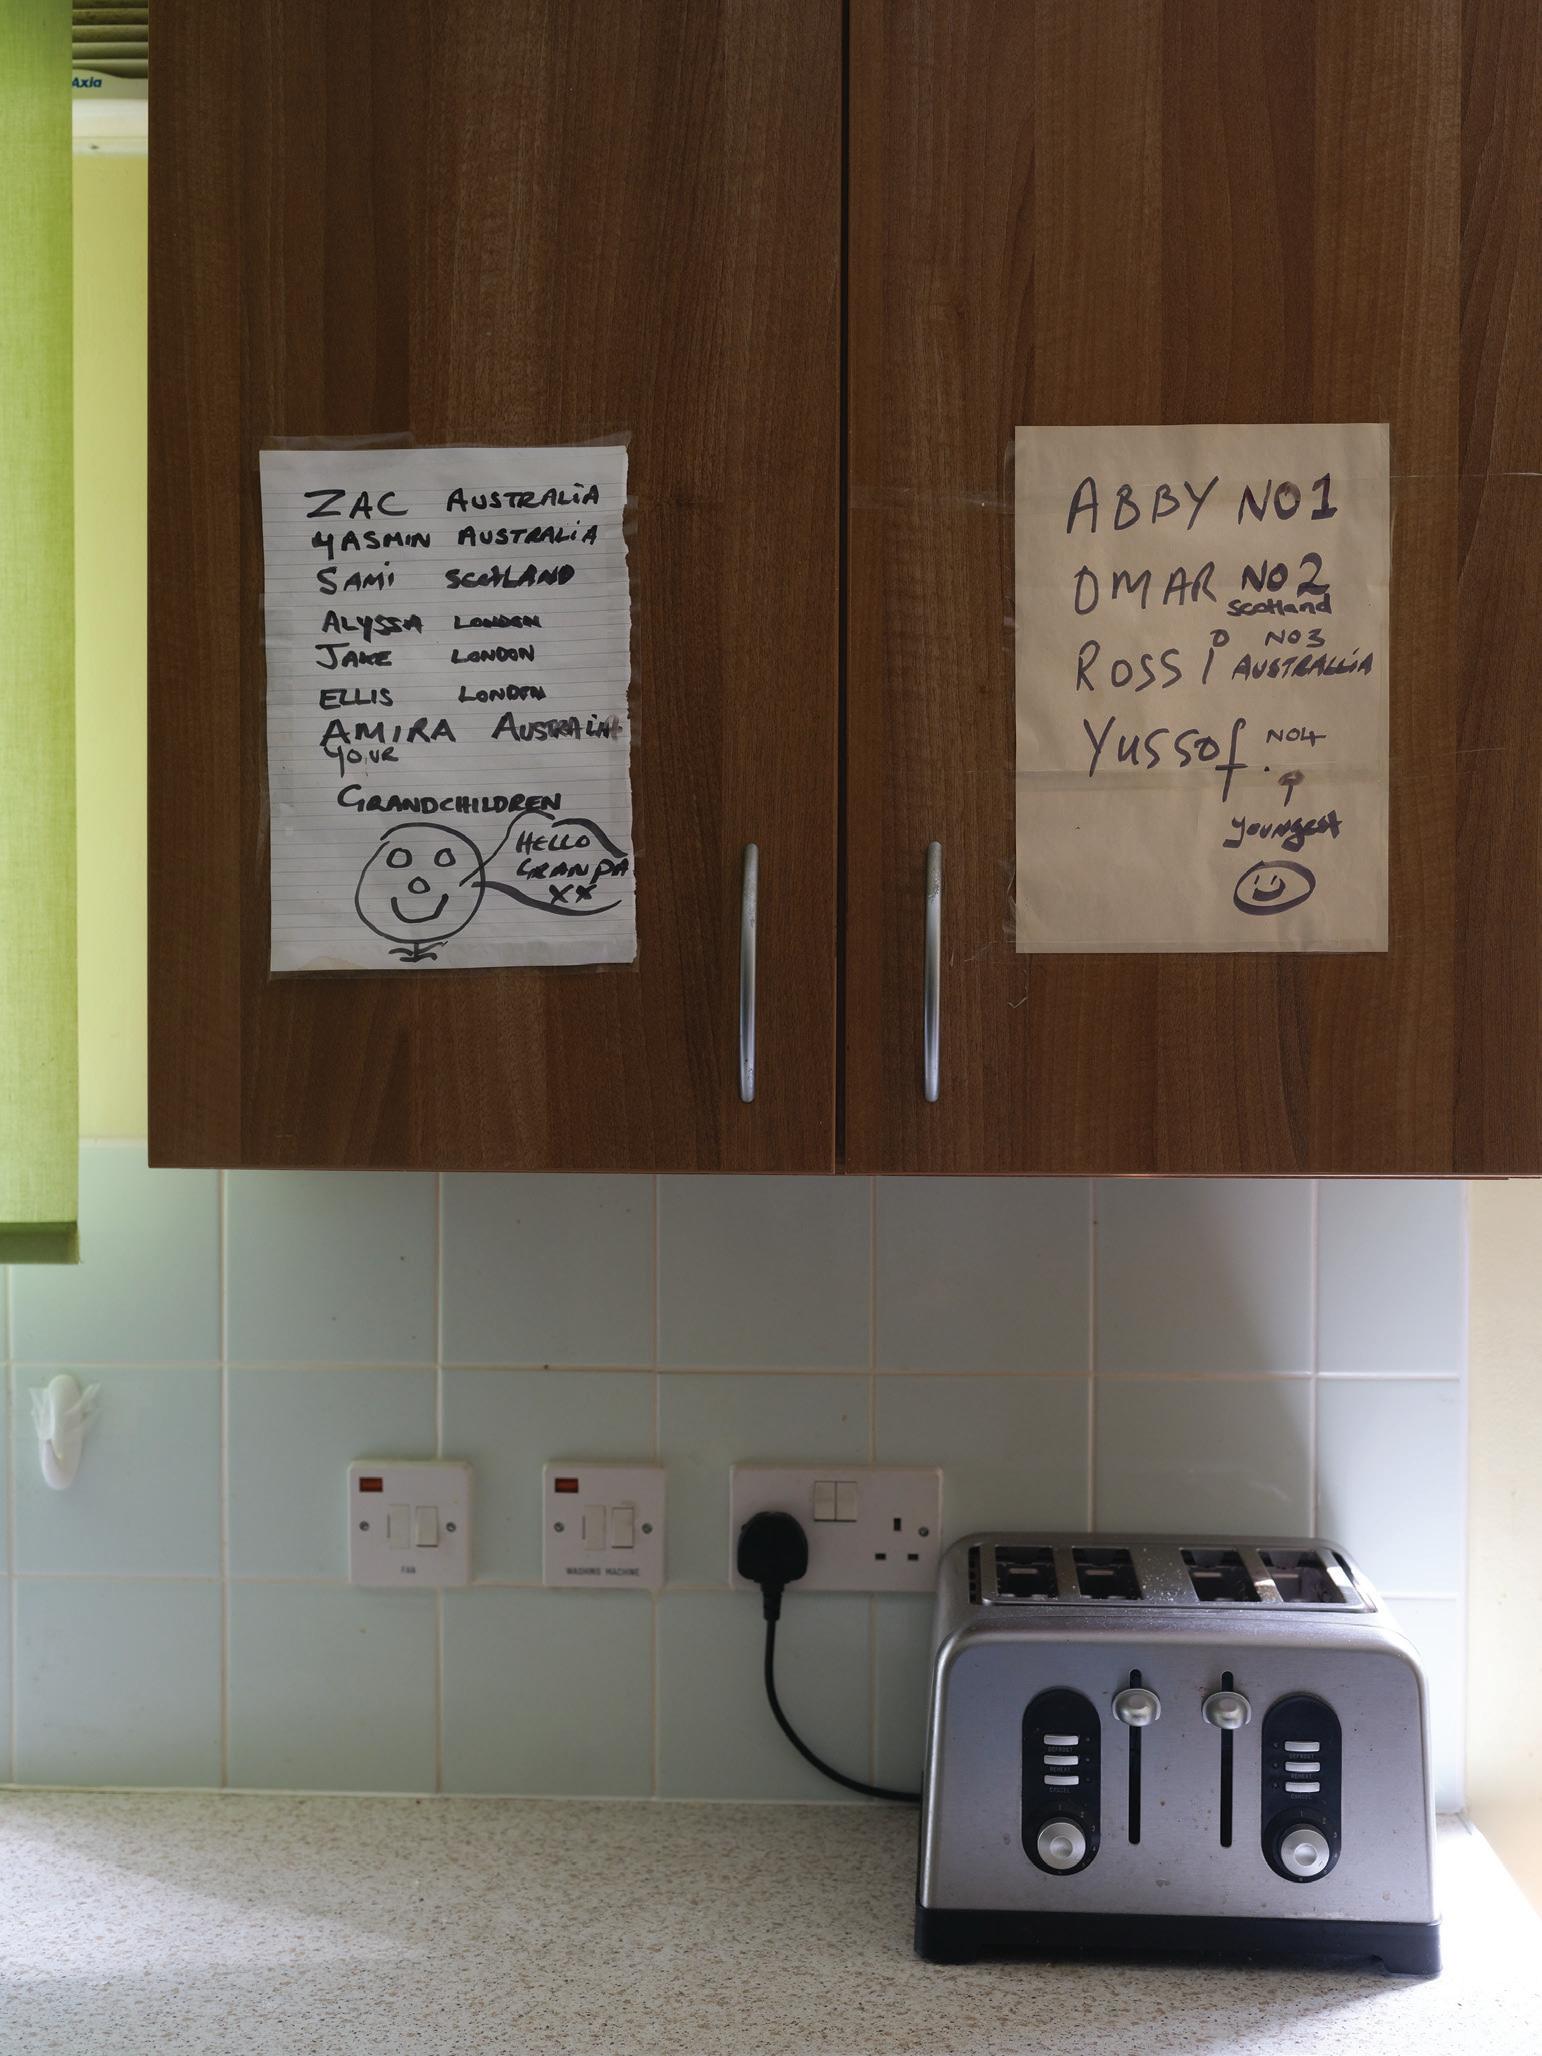 Axia
ZAC AUSTRALiA
YASMIN AUSTRALiA
SAMi SCOTLAND
ALYSSA LONDON
JAKE LONDON
ELLIS LONDON
AMIRA AUSTRALiA
YOUR
GRANDCHILDREN
HELLO
GRANPA
XX
ABBY NO1
OMAR NO2
Scotland
ROSSI NO3
AUSTRALLiA
Yussof NO4
youngest
FAN
WASHING MACHINE
DEFROST
REHEAT
CANCEL
DEFROST
REHEAT
CANCEL